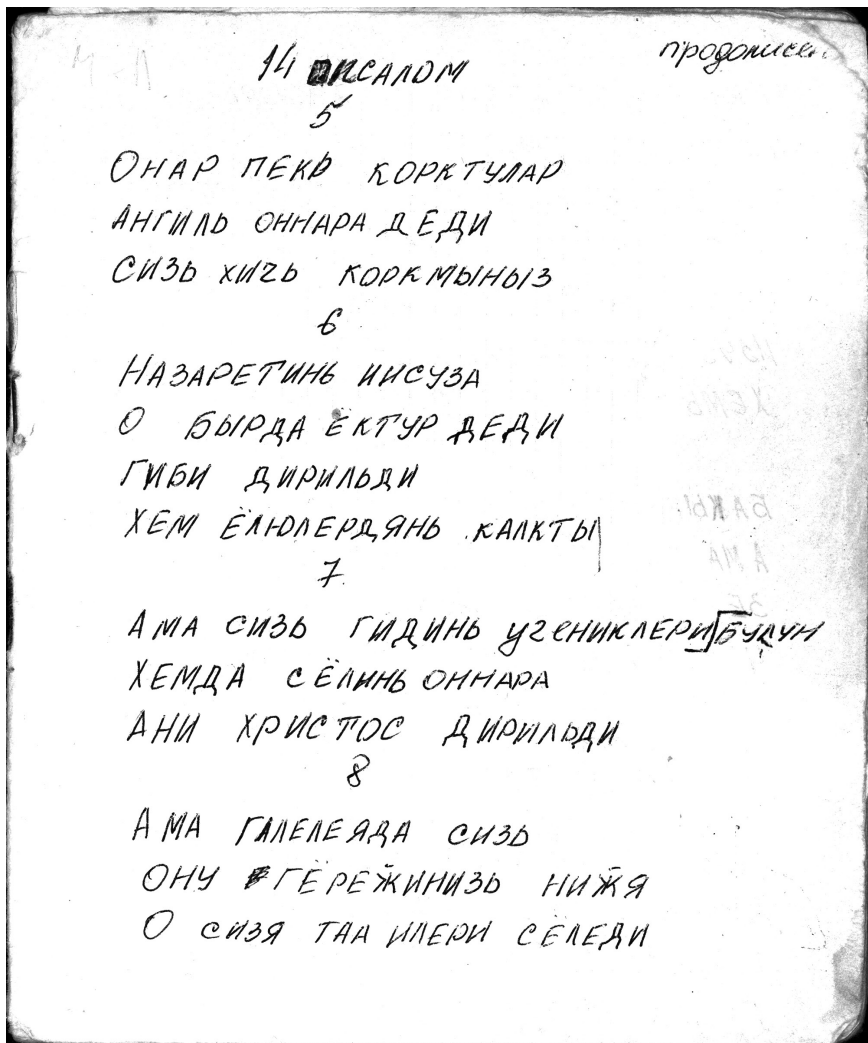 14 псалом
5
Онар пекь корктулар
Ангиль оннара деди
Сизь хичь коркмыныз
6
Назаретинь иисуза
О бырда ёктур деди
Гиби дирильди
Хем ёлюлердянь калкты
7
Ама сизь гидинь учениклери булун
Хемда сёлинь оннара
Ани Христос дирильди
8
Ама Галелеяда сизь
Ону гёрежинизь нижя
О сизя таа илери сёледи